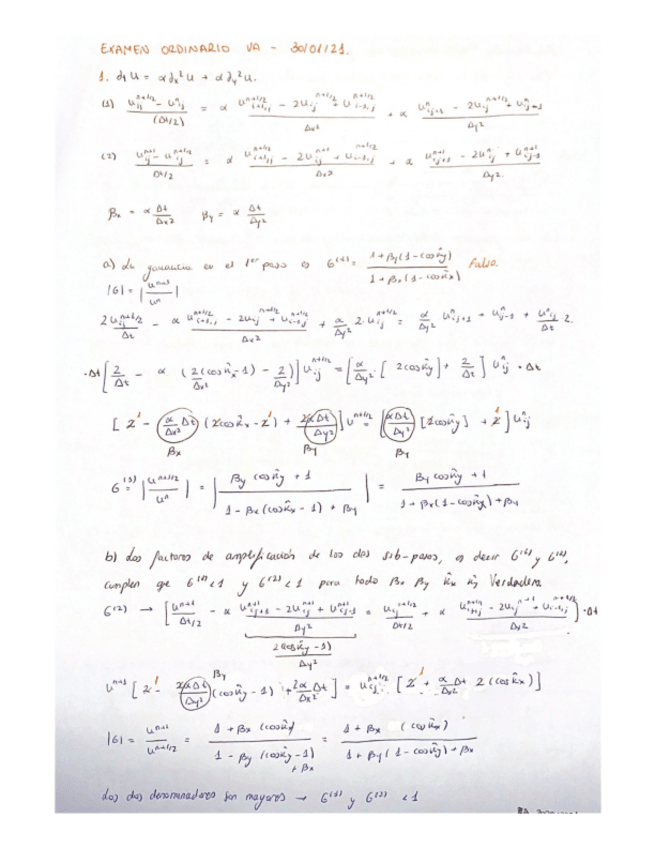 EXAMEN ORDINARIO VA - 30/01/21.
1. ∂t u = α ∂x² u + α ∂y² u.
(1) (u_ij^{n+1/2} - u_ij^n)/(Δt/2) = α (u_{i+1,j}^{n+1/2} - 2u_ij^{n+1/2} + u_{i-1,j}^{n+1/2})/Δx² + α (u_{ij+1}^n - 2u_ij^n + u_{ij-1}^n)/Δy²
(2) (u_ij^{n+1} - u_ij^{n+1/2})/(Δt/2) = α (u_{i+1,j}^{n+1/2} - 2u_ij^{n+1/2} + u_{i-1,j}^{n+1/2})/Δx² + α (u_{ij+1}^{n+1} - 2u_ij^{n+1} + u_{ij-1}^{n+1})/Δy².
βx = α Δt/Δx² βy = α Δt/Δy²
a) La ganancia en el 1er paso es G^(1) = (1 + βy(1 - cos k̂y))/(1 + βx(1 - cos k̂x)) Falso.
|G| = |u^{n+1}/u^n|
2u_ij^{n+1/2}/Δt - α (u_{i+1,j}^{n+1/2} - 2u_ij^{n+1/2} + u_{i-1,j}^{n+1/2})/Δx² + α/Δy² 2·u_ij^{n+1/2} = α/Δy² u_{ij+1}^n + u_{ij-1}^n + u_ij^n/Δt 2.
·Δt [2/Δt - α (2(cos k̂x - 1)/Δx² - 2/Δy²)] u_ij^{n+1/2} = [α/Δy² · [2cos k̂y] + 2/Δt] u_ij^n · Δt
[2 1 - (α/Δx² Δt) (2cos k̂x - 2 1) + 2αΔt/Δy²] u^{n+1/2} = [αΔt/Δy² [2cos k̂y] + 2 1] u_ij^n
βx βy βy
G^(1) = |u^{n+1/2}/u^n| = |(βy cos k̂y + 1)/(1 - βx(cos k̂x - 1) + βy)| = (βy cos k̂y + 1)/(1 + βx(1 - cos k̂x) + βy)
b) Los factores de amplificación de los dos sub-pasos, es decir G^(1) y G^(2),
cumplen que G^(1) < 1 y G^(2) < 1 para todo βx βy k̂x k̂y Verdadera
G^(2) → [u^{n+1}/(Δt/2) - α (u_{ij+1}^{n+1} - 2u_ij^{n+1} + u_{ij-1}^{n+1})/Δy² = u_ij^{n+1/2}/(Δt/2) + α (u_{i+1,j}^{n+1/2} - 2u_ij^{n+1} + u_{i-1,j}^{n+1/2})/Δx²] · Δt
2(cos k̂y - 1)/Δy²
βy
u^{n+1} [2 1 - 2αΔt/Δy² (cos k̂y - 1) + 2α Δt/Δx²] = u_ij^{n+1/2} [2 1 + α Δt/Δx² 2 (cos k̂x)]
|G| = u^{n+1}/u^{n+1/2} = (1 + βx (cos k̂x))/(1 - βy (cos k̂y - 1) + βx) = (1 + βx (cos k̂x))/(1 + βy (1 - cos k̂y) + βx)
Los dos denominadores son mayores → G^(1) y G^(2) < 1